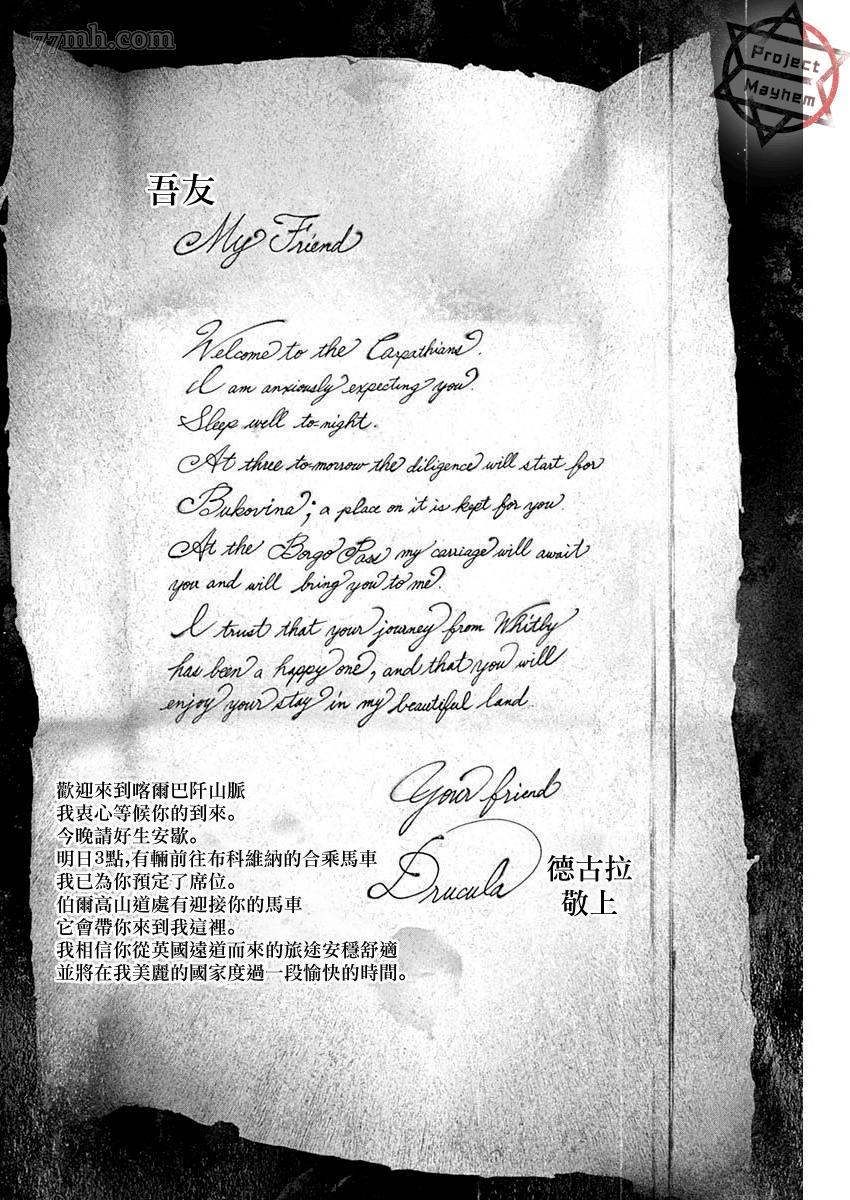 77mh.com
Project
Mayhem
吾友
My Friend
Welcome to the Carpathians.
I am anxiously expecting you.
Sleep well to-night.
At three to-morrow the diligence will start for
Bukovina; a place on it is kept for you.
At the Borgo Pass my carriage will await
you and will bring you to me.
I trust that your journey from Whitby
has been a happy one, and that you will
enjoy your stay in my beautiful land.
Your friend
Drucula
德古拉
敬上
歡迎來到喀爾巴阡山脈
我衷心等候你的到來。
今晚請好生安歇。
明日3點,有輛前往布科維納的合乘馬車
我已為你預定了席位。
伯爾高山道處有迎接你的馬車
它會帶你來到我這裡。
我相信你從英國遠道而來的旅途安穩舒適
並將在我美麗的國家度過一段愉快的時間。